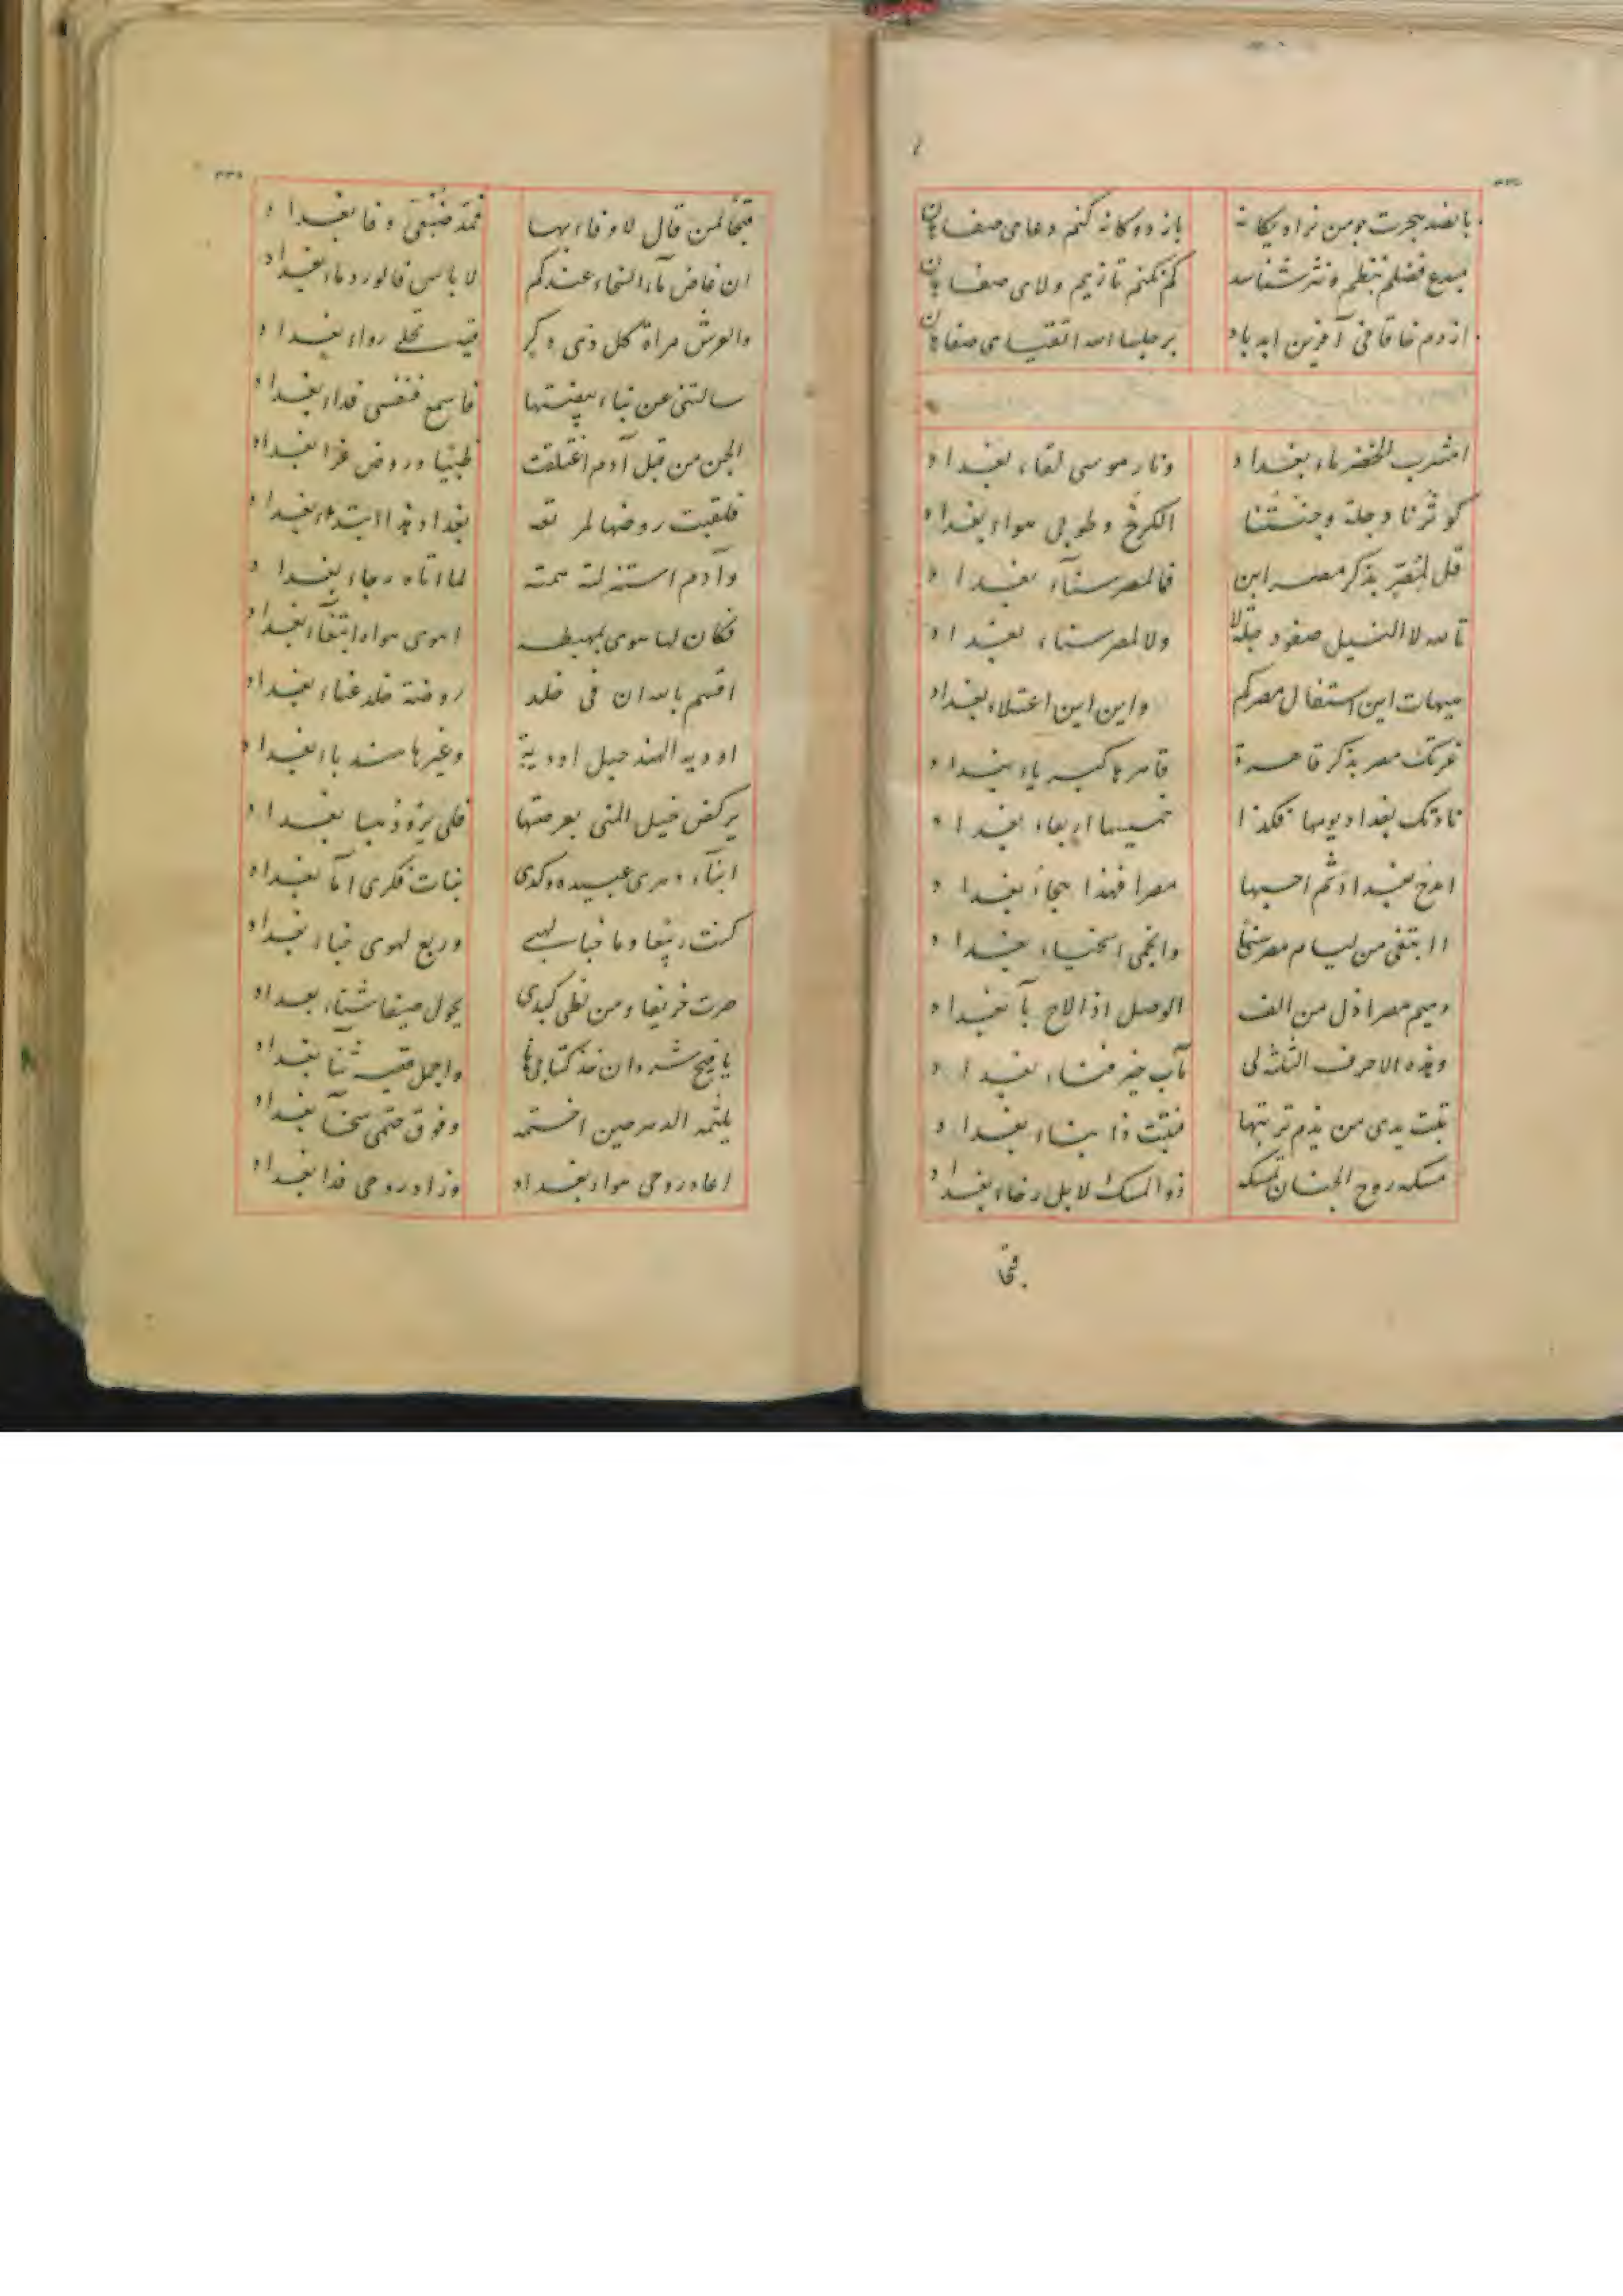 پانصد هجرت چو من نزاد یگانه باز دوگانه کنم دعای صفاهان
مبدع فضلم بنظم و نثر شناسد کم نکنم تا زیم ولای صفاهان
از دم خاقانی آفرین ابد باد بر جلساء الله اتقیای صفاهان
امشرب الخضر ماء بغداد ونار موسی لقاء بغداد
کوثرنا دجلة وجنتنا الکرخ وطوبی هواء بغداد
قل بذکر مصر این فما لمصر سناء بغداد
تالله لا النیل صفو دجلة لا ولا لمصر سناء بغداد
هیهات این استفال مصرکم واین این اعتلاء بغداد
غرتک مصر بذکر قاهرة قاهرها کبریاء بغداد
نادتک بغداد یومها فکذا خمیسها اربعاء بغداد
امدح بغداد ثم احسبها مصرا فهذا هجاء بغداد
اابتغی من لیام مصر سخا وانجمی اسخیاء بغداد
ومیم مصر اذل من الف الوصل اذا لاح باء بغداد
وهذه الاحرف الثلثة لی باب خیر فناء بغداد
تبت یدی من یذم تربتها فبنت ذا بناء بغداد
مسکه روح الجنان تمسکه ذو المسک لا بل رخاء بغداد
قبحا
قبحا لمن قال لا وفاء بها فقد وفا بغداد
ان غاض ماء السخاء عندکم لا باس فالورد ماء بغداد
والعرش مراة کل ذی فیه تجلی رواء بغداد
سالتنی عن بناء فاسمع فنفسی فداء بغداد
الجن من قبل آدم اختلقت ظبیا وروض غزا بغداد
فلقبت روضها بغداد هذا ابتداء بغداد
وآدم استنزلته همته لما اتاه رجاء بغداد
فکان لما هوی بمهبطه اهوی هواه ابتغاء بغداد
اقسم بالله ان فی خلد روضة خلد غناء بغداد
اودیة الهند اودیة وغیرها هندباء بغداد
یرکض خیل المنی بعرصتها بغداد
ابناء دهری عبیده وکذی بنات فکری اماء بغداد
کنت ربیعا وما خبا لهبی وربع لهوی خباء بغداد
صرت خریفا ومن لظی کبدی یحول صیفا شتاء بغداد
خذ کتابی ها واجمل فیه ثنا بغداد
یلثمه الدهر حین اختمه وفوق ختمی سخا بغداد
اعاد روحی هواء بغداد وزاد روحی فدا بغداد